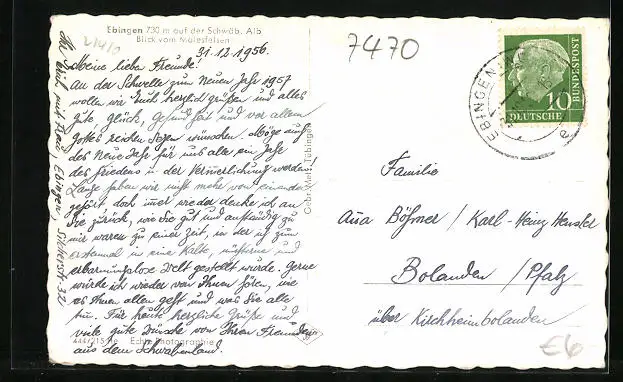 Ebingen 730 m auf der Schwäb. Alb
Blick vom Malesfelsen
31.12.1956.
Meine lieben Freunde!
An der Schwelle zum Neuen Jahr 1957
wollen wir Euch herzlich grüßen und alles
gute, Glück, Gesundheit und vor allem
Gottes reichen Segen wünschen. Möge auch
das Neue Jahr für uns alle ein Jahr
des Friedens u der werden.
Lange haben wir nichts mehr von einander
gehört doch immer wieder denke ich an
Sie zurück, wie Sie gut und anständig zu
mir waren zu einer Zeit, in der ich zum
erstenmal in eine Kalte, nüchterne und
erbarmungslose Welt gestellt wurde. Gerne
würde ich wieder von Ihnen hören, wie
es Ihnen allen geht und was Sie alle
tun. Für heute herzliche Grüße und
viele gute Wünsche von Ihren Freunden
aus dem Schwabenland.
Ebingen,
444/215
Echte Photographie
Gebr. Metz, Tübingen
7470
EBINGEN
10
BUNDESPOST
DEUTSCHE
Familie
Böhmer / Karl-Heinz
Bolanden / Pfalz
über Kirchheimbolanden
€6